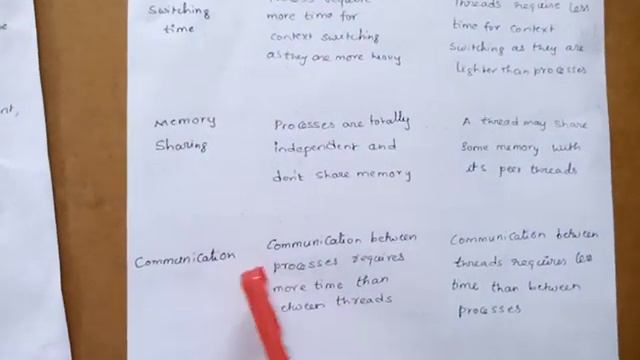 Switching
time
more time for
context switching
as they are more heavy
Threads require less
time for context
switching as they are
lighter than processes
Memory
Sharing
Processes are totally
independent and
don't share memory
A thread may share
some memory with
its peer threads
Communication
Communication between
processes requires
more time than
threads
Communication between
threads requires less
time than between
processes